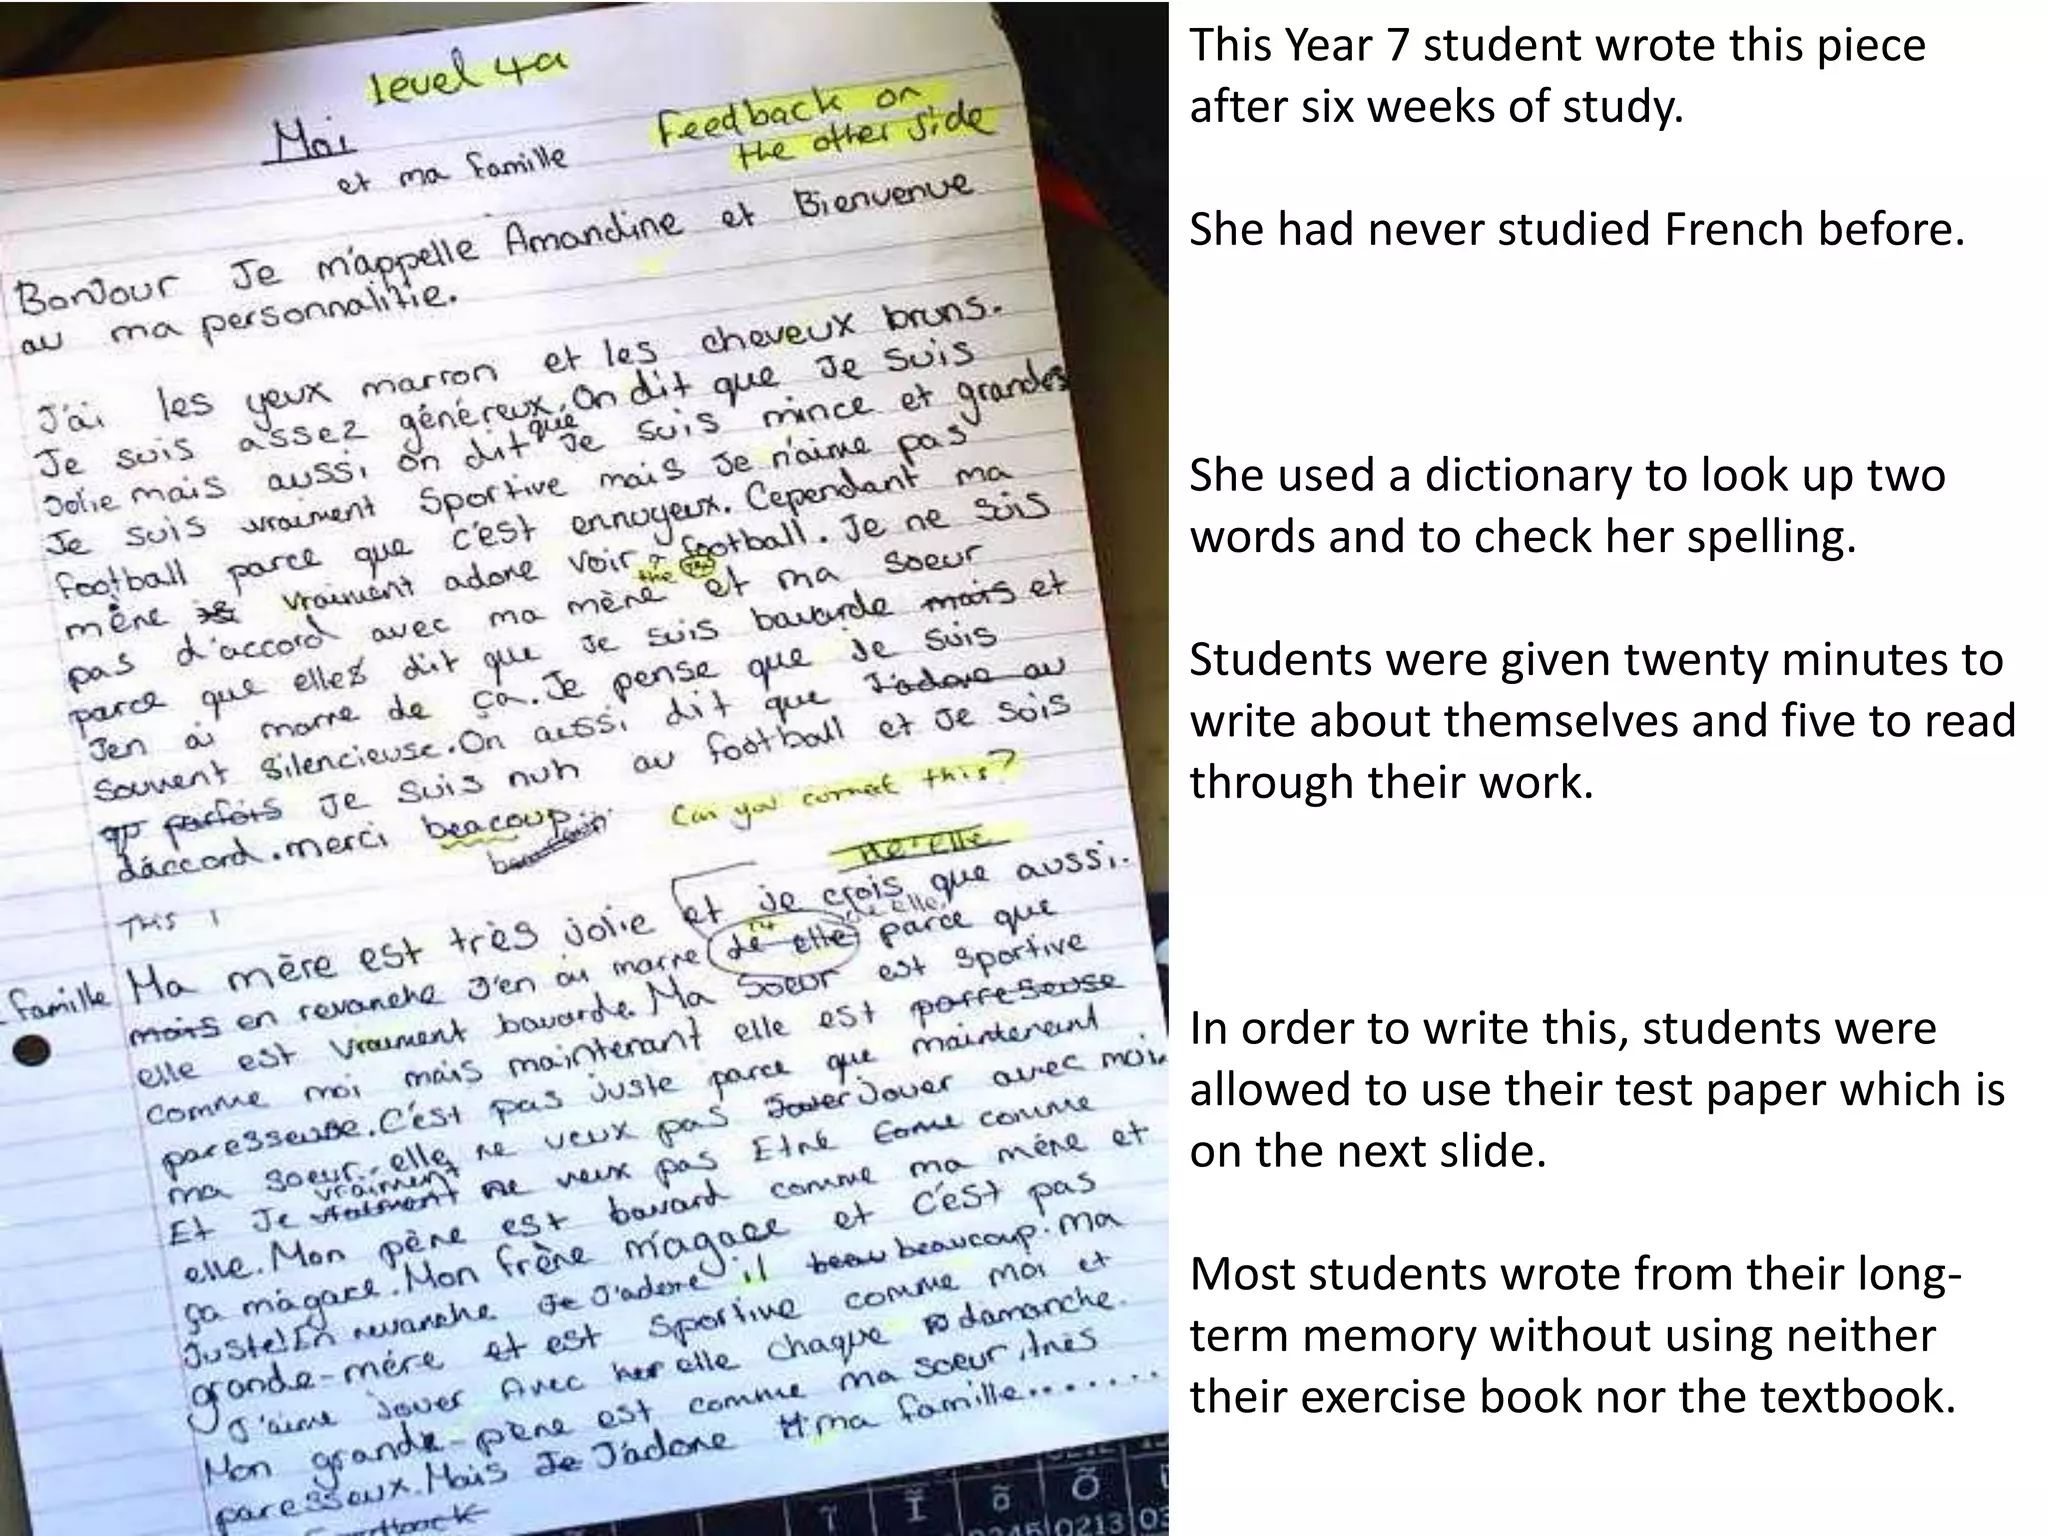 level 4a
Moi
et ma famille
Feedback on
the other side
BonJour Je m'appelle Amandine et Bienvenue
au ma personnalitie.
J'ai les yeux marron et les cheveux bruns.
Je suis assez généreux. On dit que Je suis
Jolie mais aussi on dit que Je suis mince et grandes
Je suis vraiment Sportive mais Je n'aime pas
football parce que c'est ennuyeux. Cependant ma
mère vraiment adore voir football. Je ne suis
the
pas d'accord avec ma mère et ma soeur
parce que elles dit que Je suis bavarde mais et
J'en ai marre de ça. Je pense que Je suis
souvent silencieuse. On aussi dit que J'adore au
parfois Je suis nuh au football et Je sois
d'accord. merci beacoup. Can you correct this?
This
de elle
Ma mère est très jolie et je crois que aussi.
famille
mais en revanche J'en ai marre de elle parce que
elle est vraiment bavarde. Ma soeur est sportive
comme moi mais maintenant elle est parreseuse
paresseuse. C'est pas juste parce que maintenant
ma soeur elle ne veux pas Jouer avec moi.
Et Je vraiment ne veux pas Etre comme comme
elle. Mon père est bavard comme ma mère et
ça m'agace. Mon frère m'agace et C'est pas
Juste! En revanche Je J'adore il beaucoup. Ma
grande-mère et est sportive comme moi et
J'aime Jouer Avec her elle chaque damanche.
Mon grande-père est comme ma soeur, très
paresseux. Mais Je J'adore ma famille........
This Year 7 student wrote this piece
after six weeks of study.
She had never studied French before.
She used a dictionary to look up two
words and to check her spelling.
Students were given twenty minutes to
write about themselves and five to read
through their work.
In order to write this, students were
allowed to use their test paper which is
on the next slide.
Most students wrote from their long-
term memory without using neither
their exercise book nor the textbook.